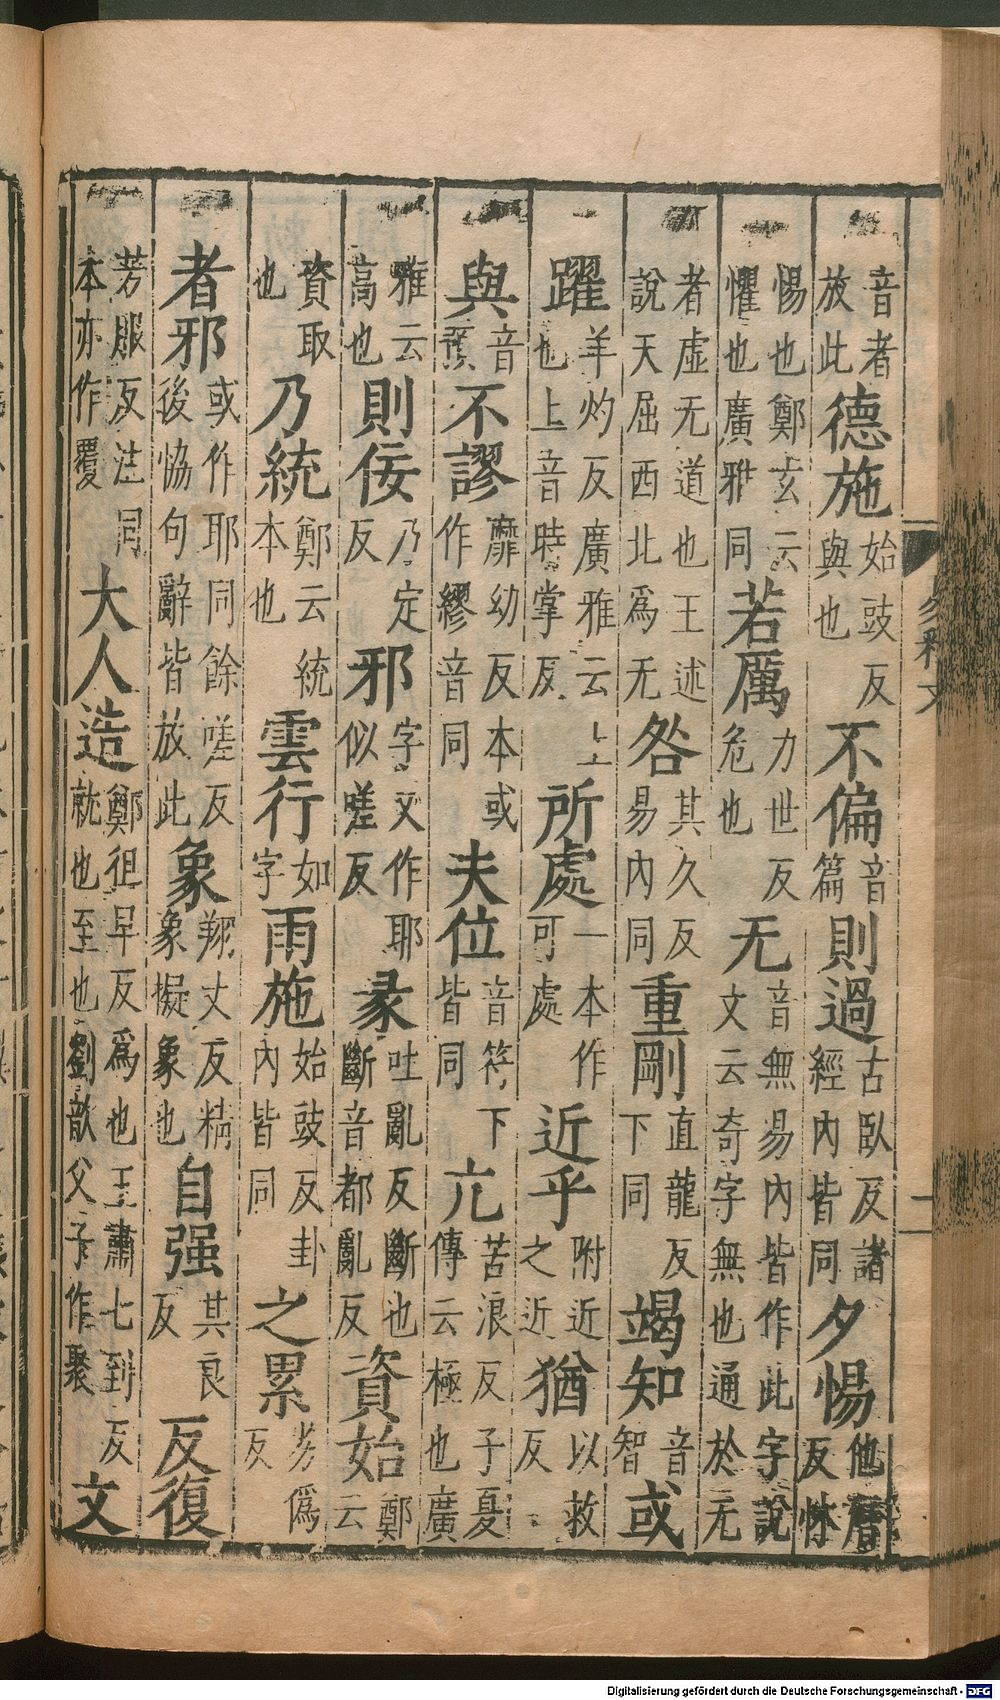 音者放此德施始豉反與也不偏音篇則過古臥反諸經內皆同夕惕他曆反怵
惕也鄭玄云懼也廣雅同若厲力世反危也无音無易內皆作此字說文云奇字無也通於无
者虛无道也王述說天屈西北為无咎其久反易內同重剛直龍反下同竭知音智或
躍羊灼反廣雅云上也上音時掌反所處一本作可處近乎附近之近猶以救反
與音預不謬靡幼反本或作繆音同夫位音符下皆同亢苦浪反子夏傳云極也廣
雅云高也則佞乃定反邪字又作耶似嗟反彖吐亂反斷也斷音都亂反資始鄭云
資取也乃統鄭云統本也雲行如字雨施始豉反卦內皆同之累劣偽反
者邪或作耶同餘嗟反後協句辭皆放此象翔丈反精象擬象也自强其良反反復
芳服反注同本亦作覆大人造鄭徂早反為也王肅七到反就也至也劉歆父子作聚文
二
Digitalisierung gefördert durch die Deutsche Forschungsgemeinschaft - DFG